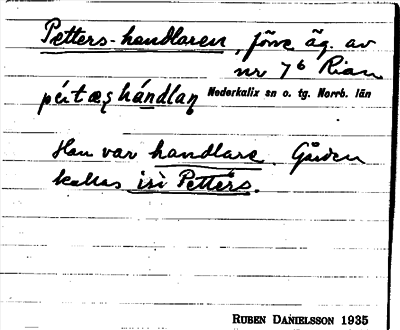 Petters-handlaren, förre äg. av
nr 7⁶ Rian
pét æṣ hándlaṇ Nederkalix sn o. tg. Norrb. län
Han var handlare. Gården
kallas isì Petters.
RUBEN DANIELSSON 1935